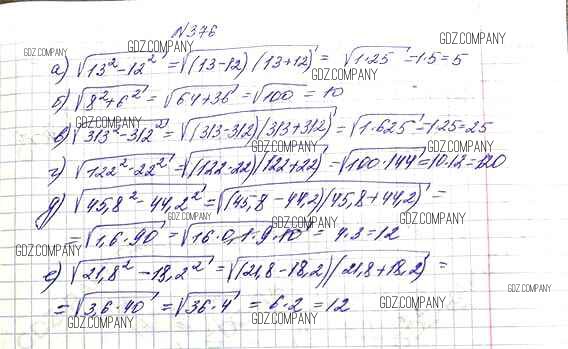 №376
GDZ.COMPANY GDZ.COMPANY GDZ.COMPANY
а) √13²-12² = √(13-12)(13+12) = √1·25 = 1·5 = 5
GDZ.COMPANY
б) √8²+6² = √64+36 = √100 = 10
GDZ.COMPANY GDZ.COMPANY
в) √313²-312² = √(313-312)(313+312) = √1·625 = 1·25 = 25
GDZ.COMPANY GDZ.COMPANY
г) √122²-22² = √(122-22)(122+22) = √100·144 = 10·12 = 120
GDZ.COMPANY
д) √45,8²-44,2² = √(45,8-44,2)(45,8+44,2) =
GDZ.COMPANY GDZ.COMPANY GDZ.COMPANY
= √1,6·90 = √16·0,1·9·10 = 4·3 = 12
GDZ.COMPANY
е) √21,8²-18,2² = √(21,8-18,2)(21,8+18,2) =
GDZ.COMPANY GDZ.COMPANY
= √3,6·40 = √36·4 = 6·2 = 12
GDZ.COMPANY GDZ.COMPANY GDZ.COMPANY